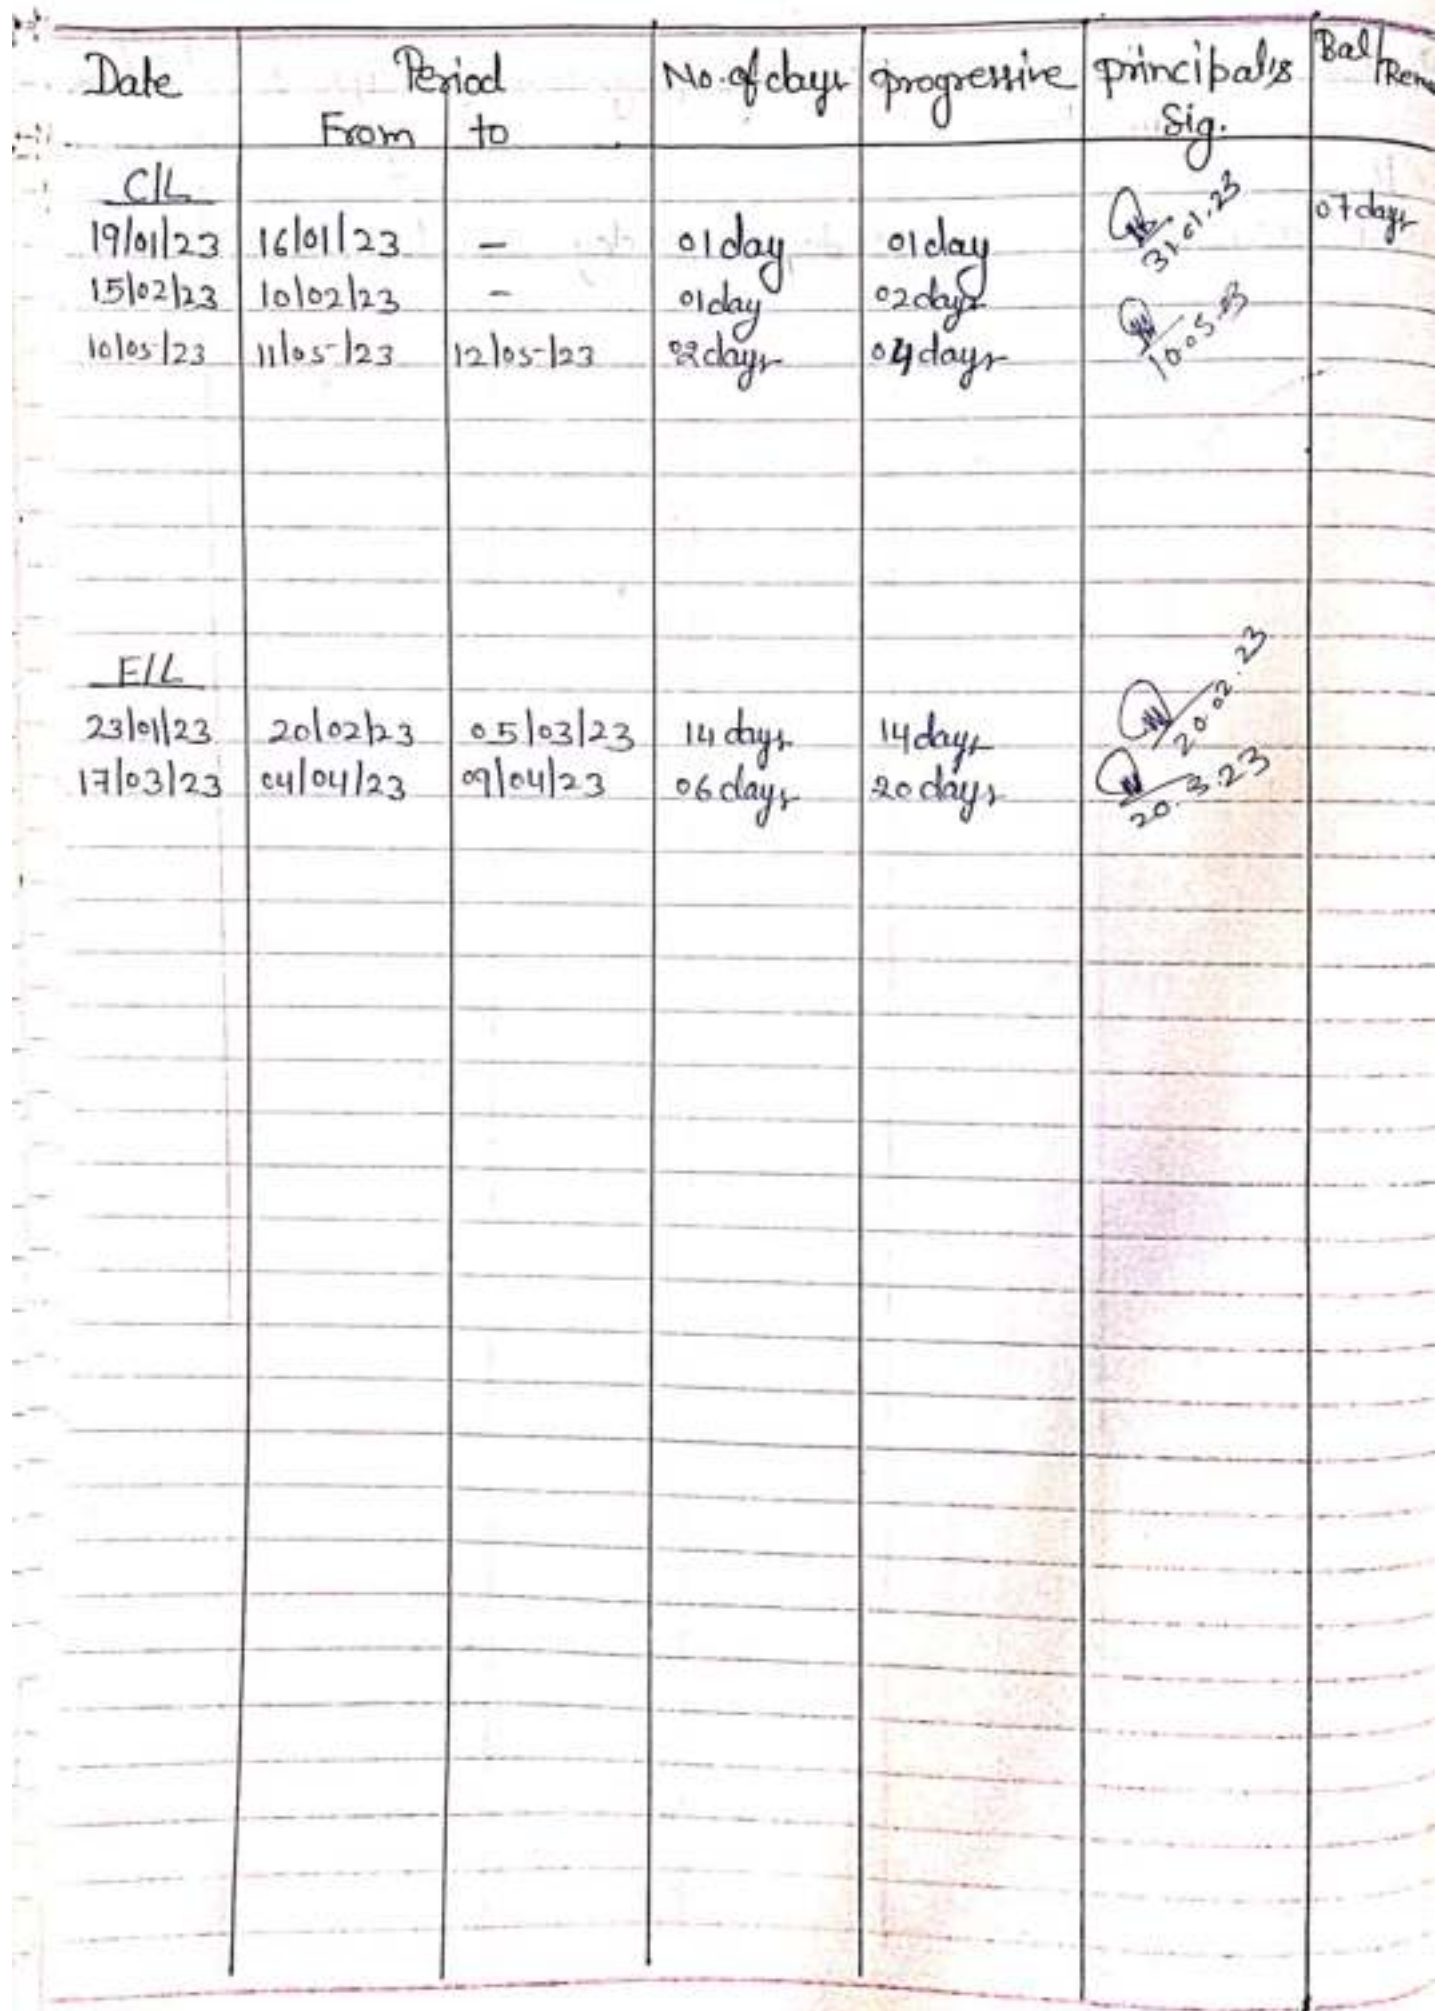 Date Period No. of days progressive principal's Bal/
From to Sig.
C/L
19/01/23 16/01/23 - 01 day 01 day 31.01.23 07 days
15/02/23 10/02/23 - 01 day 02 days
10/05/23 11/05/23 12/05/23 02 days 04 days 10.05.23
E/L
23/01/23 20/02/23 05/03/23 14 days 14 days 20.02.23
17/03/23 04/04/23 09/04/23 06 days 20 days 20.3.23